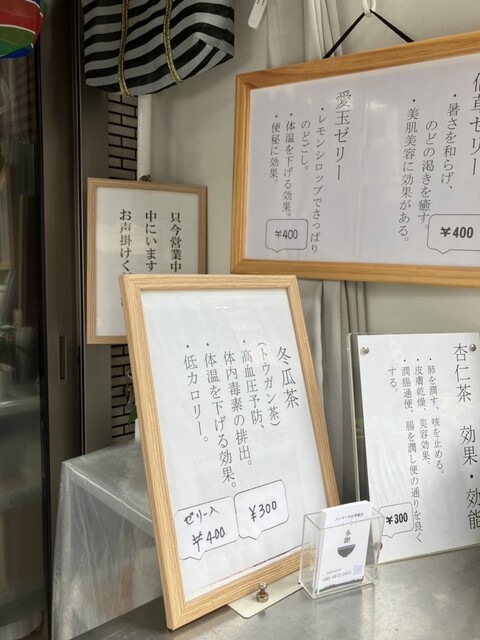 仙草ゼリー
・暑さを和らげ、
のどの渇きを癒す。
・美肌美容に効果がある。
¥400
愛玉ゼリー
・レモンシロップでさっぱり
のどごし。
・体温を下げる効果。
・便秘に効果。
¥400
只今営業中
中にいます
お声掛けく
冬瓜茶
(トウガン茶)
・高血圧予防、
体内毒素の排出。
・体温を下げる効果。
・低カロリー。
¥300
ゼリー入
¥400
杏仁茶 効果・効能
・肺を潤す、咳を止める。
・皮膚乾燥、美容効果。
・潤腸通便、腸を潤し便の通りを良く
する。
¥300